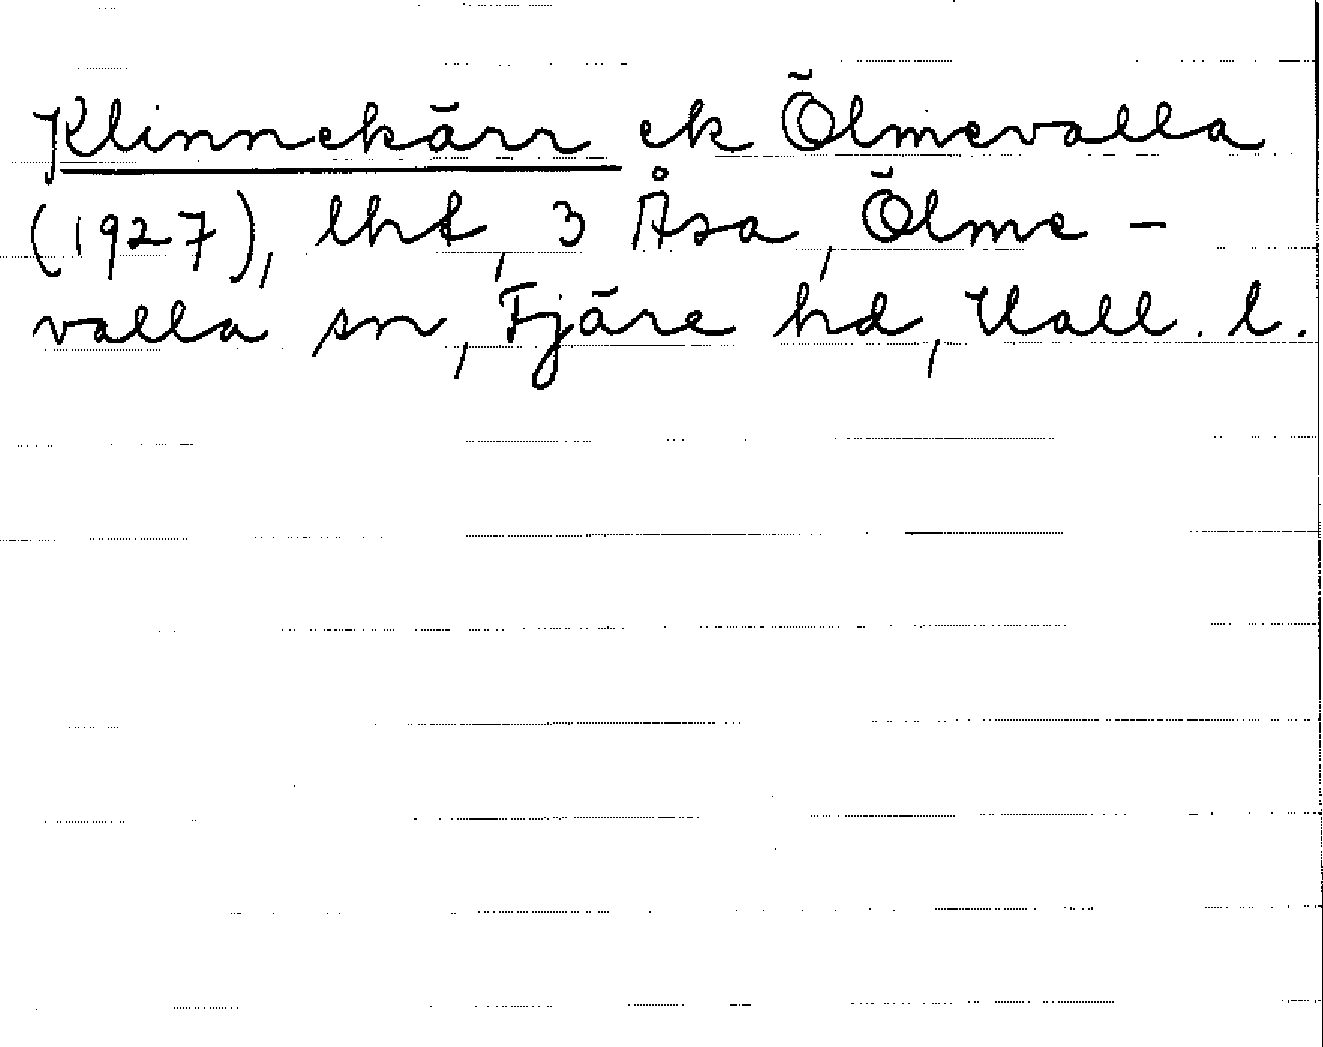 Klinnekärr ek Ölmevalla
(1927), lht, 3 Åsa, Ölme-
valla sn, Fjäre hd, Hall. l.